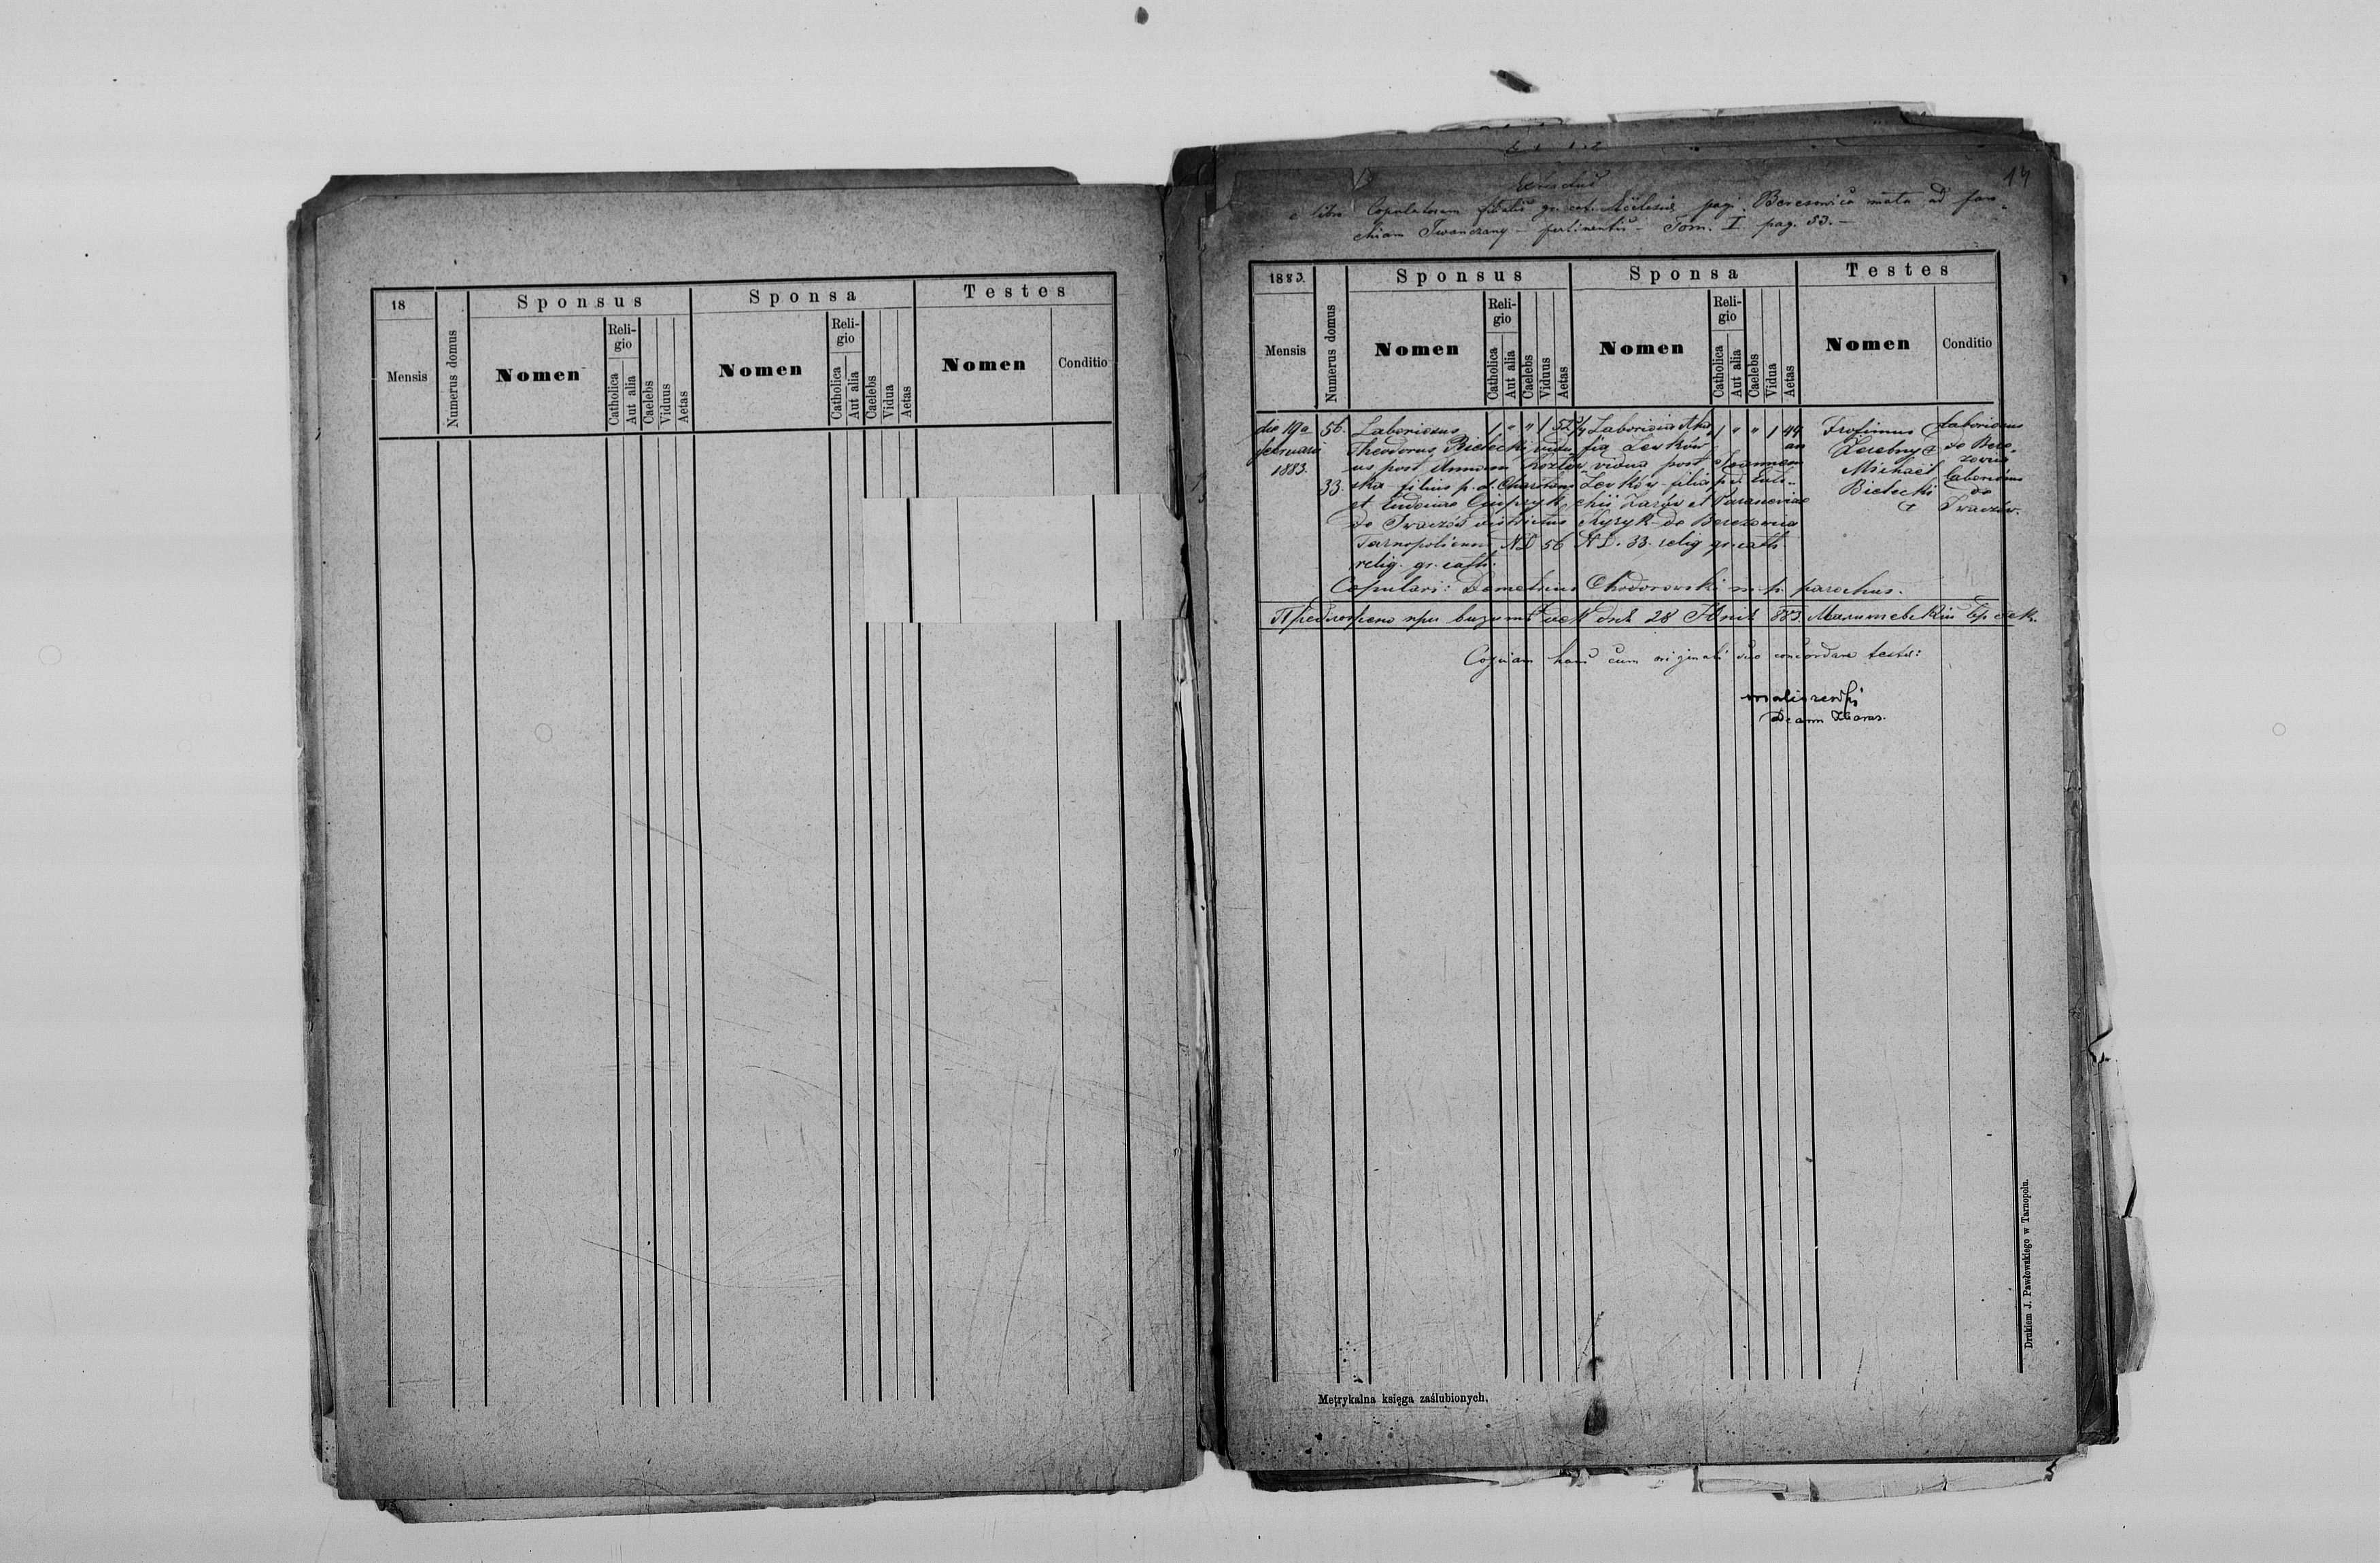 18
Mensis
Numerus domus
Sponsus
Nomen
Religio
Catholica
Aut alia
Caelebs
Viduus
Aetas
Sponsa
Nomen
Religio
Catholica
Aut alia
Caelebs
Vidua
Aetas
Testes
Nomen
Conditio
14
e libro Copulatorum filialis gr. cat. Ecclesiae pagi Berezowica mała ad paro-
chiam Iwanczany - pertinentis - Tom. I pag. 53. -
1883.
Mensis
Numerus domus
Sponsus
Nomen
Reli-
gio
Catholica
Aut alia
Caelebs
Viduus
Aetas
Sponsa
Nomen
Reli-
gio
Catholica
Aut alia
Caelebs
Vidua
Aetas
Testes
Nomen
Conditio
die 19a
februarii
1883.
56.
33.
Laboriosus 1 " " 1 52
Theodorus Bielecki vidu-
us post Annam Kozłow-
ska filius p. d.
et Eudociae
de Iwaczów districtus
Tarnopoliensis ND 56
relig. gr. cath.
Laboriosa 1 " " 1 44
fia Levków
vidua post Joannem
Levków filia p. d. Euti-
chii Zazów et Parasceviae
de Berezovica
ND. 33. relig gr. cath.
Trofimus
Michaël
Bielecki
+
Laboriosus
de Bere-
zovica
Laboriosus
de
Iwaczów.
Copulavi: Demetrius Chodorowski m. p. parochus.
Предложено при визитѣ дек. днѣ 28 Юнія 883. Малишевскій
Copiam hanc cum originali suo concordare testor:
Maliszewski
Decan Zbaraz.
Drukiem J. Pawłowskiego w Tarnopolu.
Metrykalna księga zaślubionych.